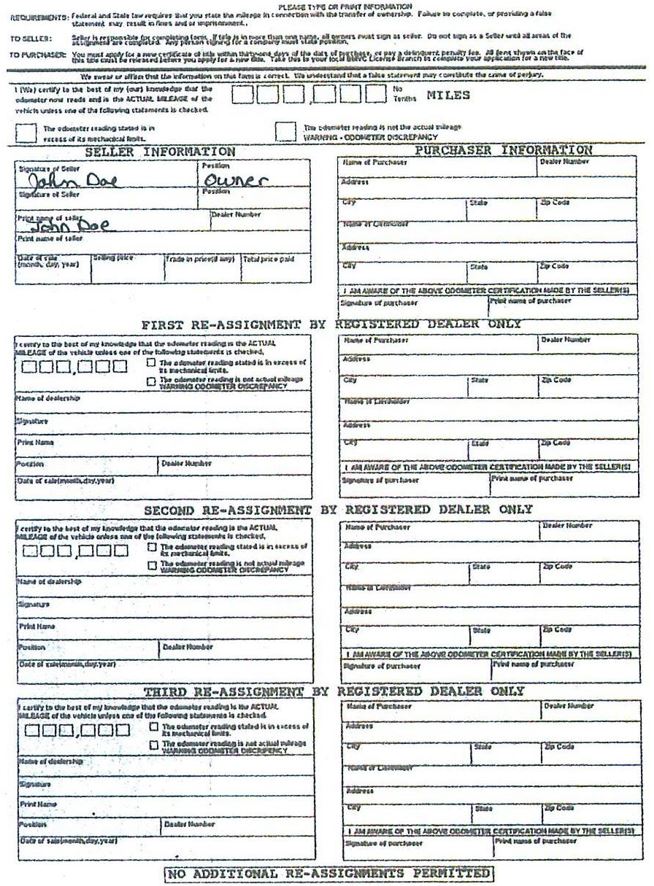 PLEASE TYPE OR PRINT INFORMATION
REQUIREMENTS: Federal and State law requires that you state the mileage in connection with the transfer of ownership. Failure to complete, or providing a false
statement may result in fines and or imprisonment.
TO SELLER: Seller is responsible for completing form. If title is in more than one name, all owners must sign as seller. Do not sign as a Seller until all areas of the
assignment are completed. Any person signing for a company must state position.
TO PURCHASER: You must apply for a new certificate of title within thirty-one days of the date of purchase, or pay a delinquent penalty fee. All liens shown on the face of
this title must be released before you apply for a new title. Take this to your local BMV License Branch to complete your application for a new title.
We swear or affirm that the information on this form is correct. We understand that a false statement may constitute the crime of perjury.
I (We) certify to the best of my (our) knowledge that the
odometer now reads and is the ACTUAL MILEAGE of the
vehicle unless one of the following statements is checked.
No
Tenths
MILES
The odometer reading stated is in
excess of its mechanical limits.
The odometer reading is not the actual mileage
WARNING - ODOMETER DISCREPANCY
SELLER INFORMATION
Signature of Seller
Position
John Doe
Owner
Signature of Seller
Print name of seller
Dealer Number
John Doe
Print name of seller
Date of sale
(month, day, year)
Selling price
Trade in price(if any)
Total price paid
PURCHASER INFORMATION
Name of Purchaser
Dealer Number
Address
City
State
Zip Code
Name of Lienholder
Address
City
State
Zip Code
I AM AWARE OF THE ABOVE ODOMETER CERTIFICATION MADE BY THE SELLER(S)
Signature of purchaser
Print name of purchaser
FIRST RE-ASSIGNMENT BY REGISTERED DEALER ONLY
I certify to the best of my knowledge that the odometer reading is the ACTUAL
MILEAGE of the vehicle unless one of the following statements is checked.
The odometer reading stated is in excess of
its mechanical limits.
The odometer reading is not actual mileage
WARNING ODOMETER DISCREPANCY
Name of dealership
Signature
Print Name
Position
Dealer Number
Date of sale(month,day,year)
Name of Purchaser
Dealer Number
Address
City
State
Zip Code
Name of Lienholder
Address
City
State
Zip Code
I AM AWARE OF THE ABOVE ODOMETER CERTIFICATION MADE BY THE SELLER(S)
Signature of purchaser
Print name of purchaser
SECOND RE-ASSIGNMENT BY REGISTERED DEALER ONLY
I certify to the best of my knowledge that the odometer reading is the ACTUAL
MILEAGE of the vehicle unless one of the following statements is checked.
The odometer reading stated is in excess of
its mechanical limits.
The odometer reading is not actual mileage
WARNING ODOMETER DISCREPANCY
Name of dealership
Signature
Print Name
Position
Dealer Number
Date of sale(month,day,year)
Name of Purchaser
Dealer Number
Address
City
State
Zip Code
Name of Lienholder
Address
City
State
Zip Code
I AM AWARE OF THE ABOVE ODOMETER CERTIFICATION MADE BY THE SELLER(S)
Signature of purchaser
Print name of purchaser
THIRD RE-ASSIGNMENT BY REGISTERED DEALER ONLY
I certify to the best of my knowledge that the odometer reading is the ACTUAL
MILEAGE of the vehicle unless one of the following statements is checked.
The odometer reading stated is in excess of
its mechanical limits.
The odometer reading is not actual mileage
WARNING ODOMETER DISCREPENCY
Name of dealership
Signature
Print Name
Position
Dealer Number
Date of sale(month,day,year)
Name of Purchaser
Dealer Number
Address
City
State
Zip Code
Name of Lienholder
Address
City
State
Zip Code
I AM AWARE OF THE ABOVE ODOMETER CERTIFICATION MADE BY THE SELLER(S)
Signature of purchaser
Print name of purchaser
NO ADDITIONAL RE-ASSIGNMENTS PERMITTED